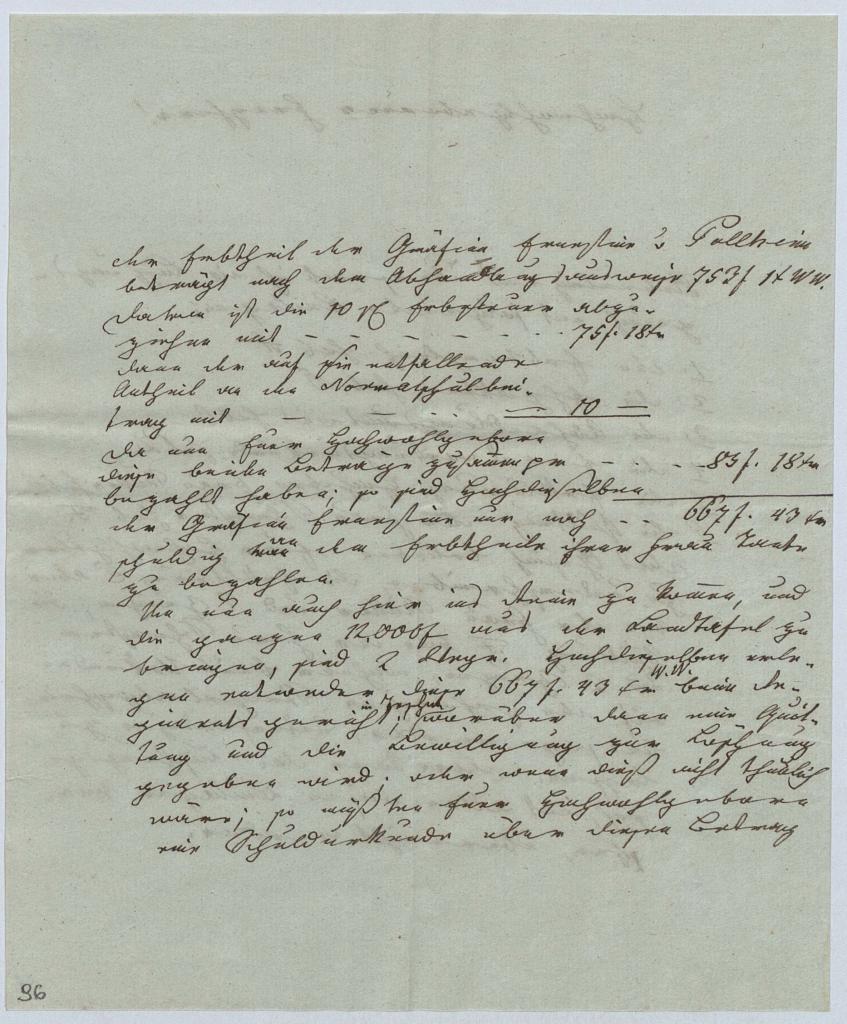 der Erbtheil der Gräfin Ernestine v Pollheim
beträgt nach dem Abhandlungsausweise 753 f 1 x WW.
Davon ist die 10 % Erbsteuer abzu-
ziehen mit – – – – – . . 75 f. 18 xr
dann der auf sie entfallende
Antheil an den Normalschulbei-
trag mit – – . . = 10 =
Da nun Euer Hochwohlgeborn
diese beiden Beträge zusammen pr – . – . 85 f. 18 xr
bezahlt haben; so sind Hochdieselben
der Gräfin Ernestine nur noch . . 667 f. 43 xr
schuldig an dem Erbtheile ihrer Frau Tante
zu bezahlen.
Um nun auch hier ins Reine zu kommen, und
die ganzen 12,000 f aus der Landtafel zu
bringen, sind 2 Wege. Hochdieselben erle-
gen entweder diese 667 f. 43 xr W.W. beim Re-
gimentsgericht, worüber dann eine Quit-
tung und die Bewilligung zur Löschung
gegeben wird; oder wenn dieß nicht thunlich
wäre; so müßten Euer Hochwohlgeborn
eine Schuldurkunde über diesen Betrag
96